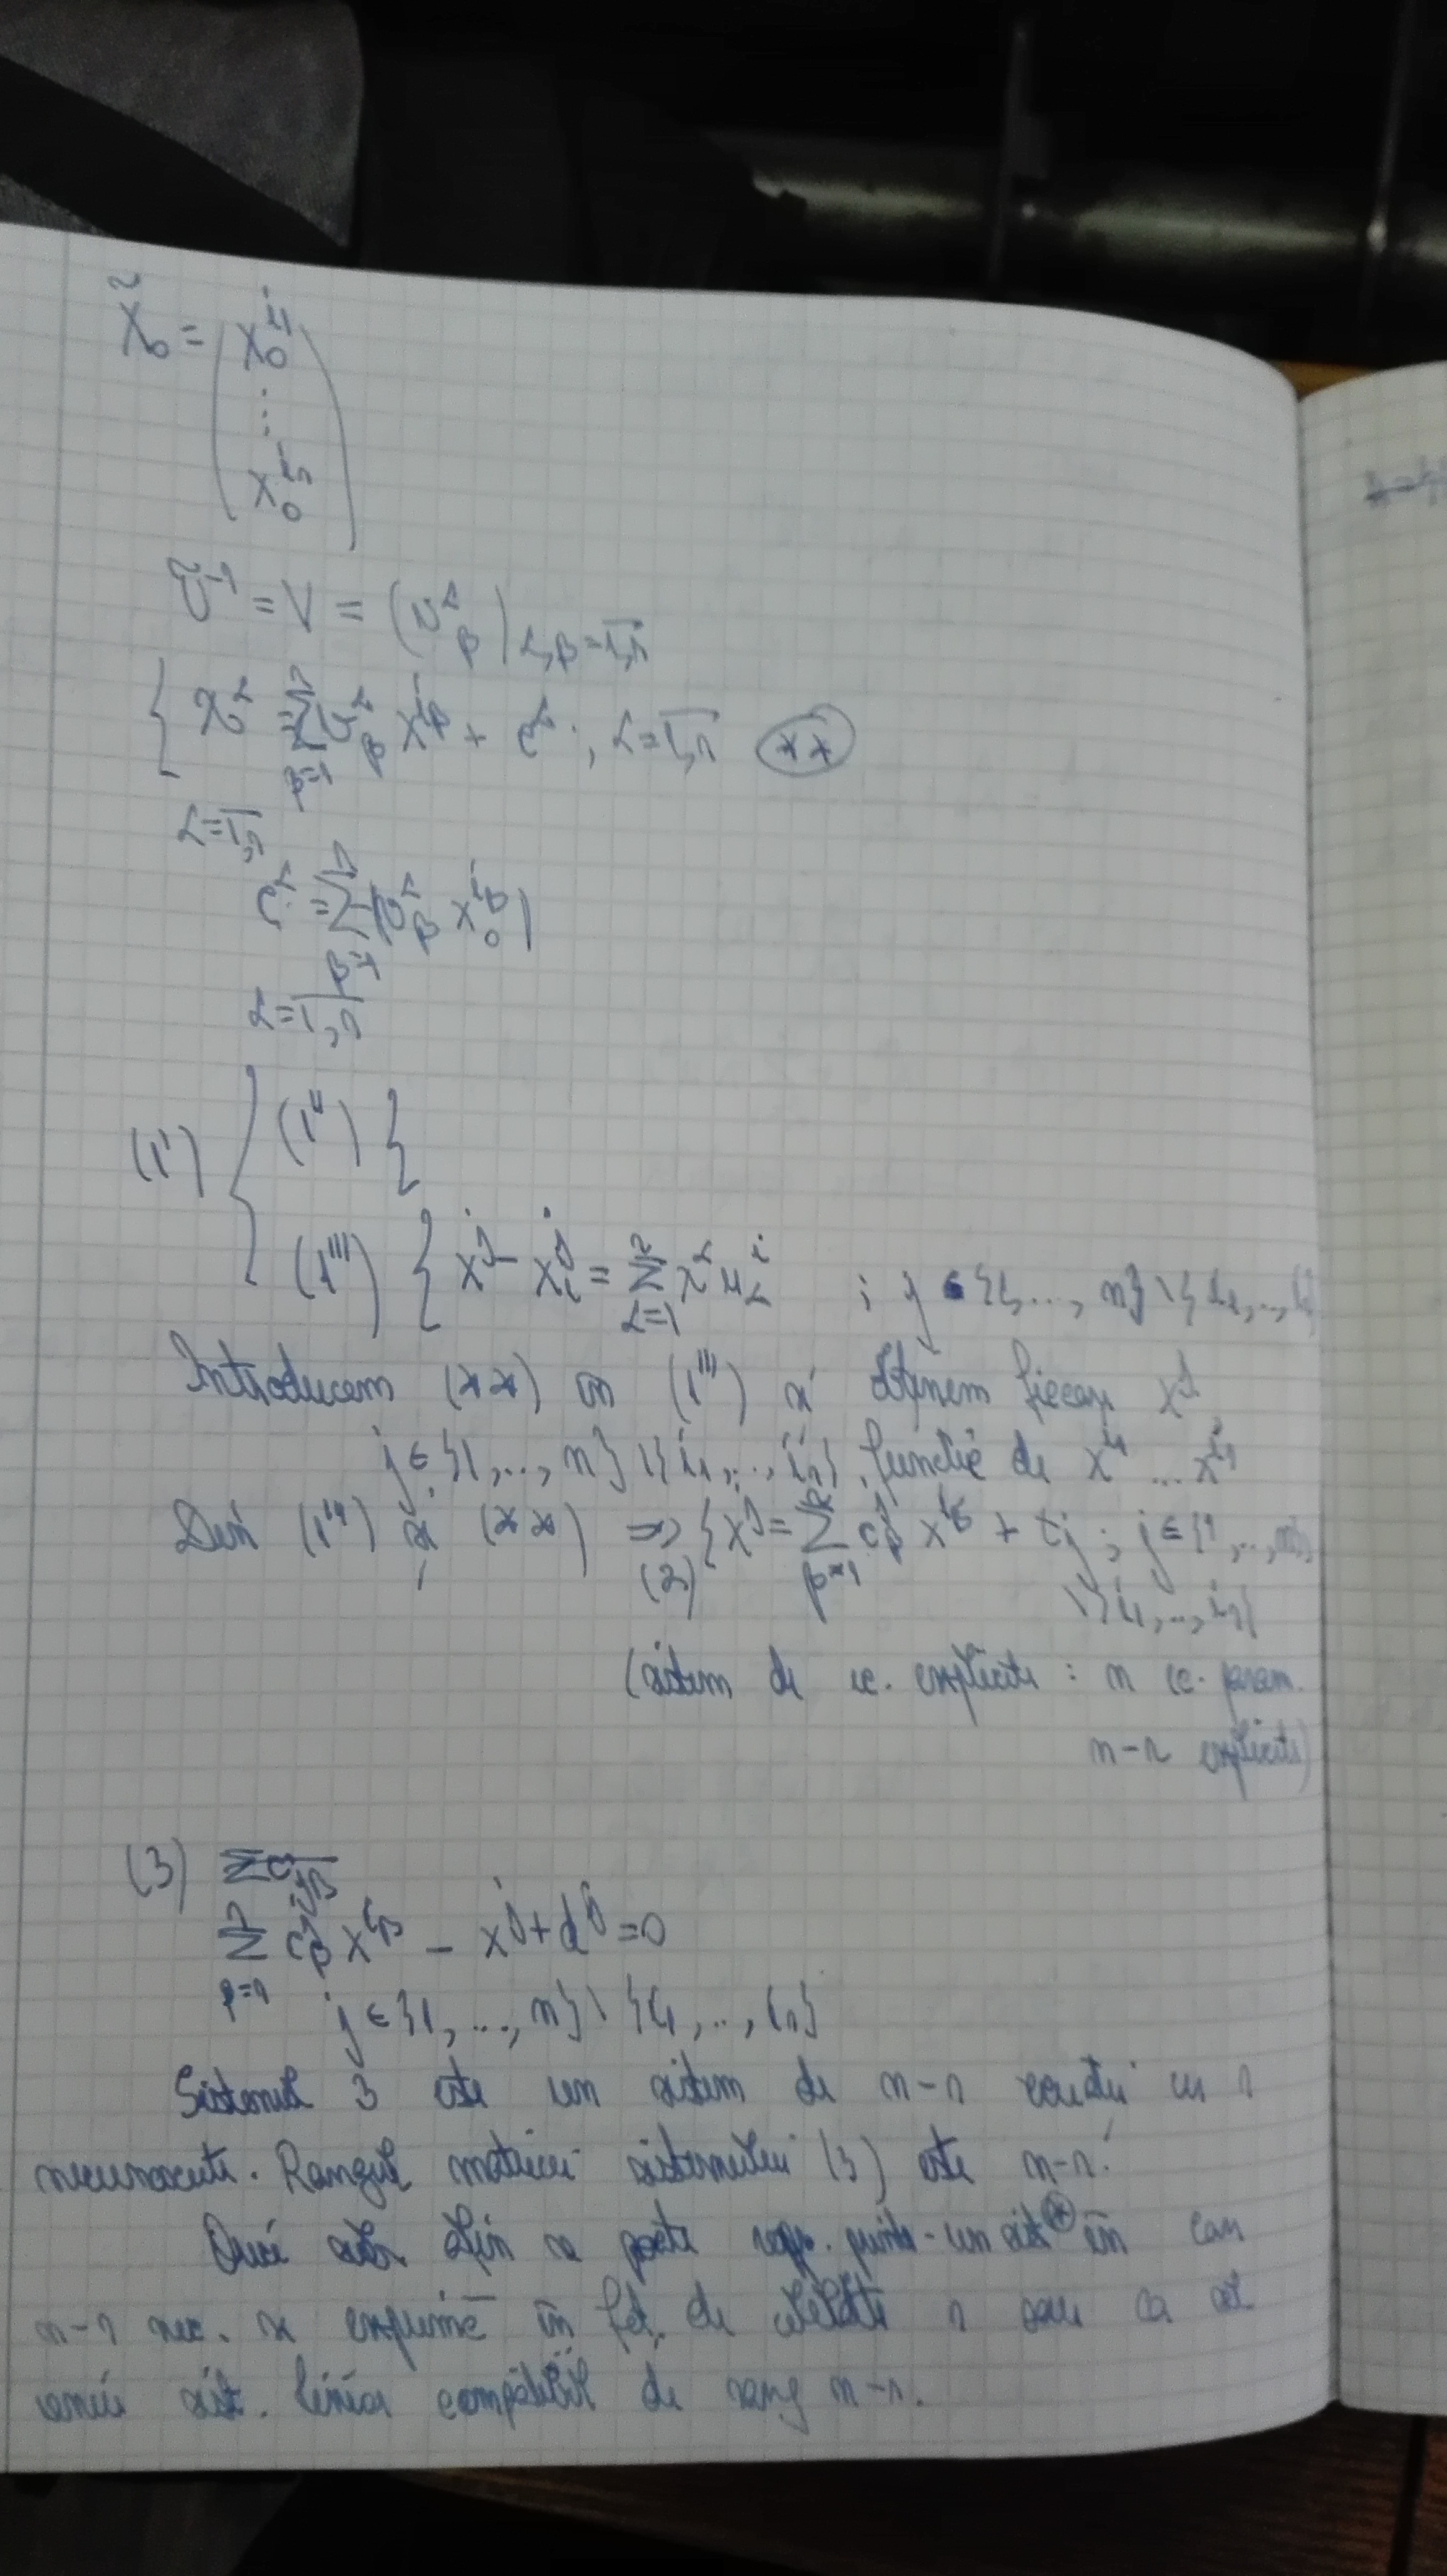 X̃₀ = ( x₀^{i₁}
⋮
x₀^{i_r} )
Ũ⁻¹ = V = (v^α_β)_{α,β=\overline{1,r}}
{ λ^α = Σ_{β=1}^{r} v^α_β x^{i_β} + e^α ; α=\overline{1,r} (**)
α=\overline{1,r}
e^α = Σ_{β=1}^{r} (v^α_β x₀^{i_β})
α=\overline{1,r}
(1') { (1'') {
(1''') { x^j - x^j_i = Σ_{α=1}^{r} λ^α u^i_α ; j ∈ {1,...,n} \ {i₁,..,i_r}
Introducem (**) în (1''') și obținem fiecare x^j
j ∈ {1,..,n} \ {i₁,..,i_r} funcție de x^{i₁} ... x^{i_r}
Din (1'') și (**) ⇒ (2) { x^j = Σ_{β=1}^{r} c^j_β x^{i_β} + t_j ; j ∈ {1,..,n}
\ {i₁,..,i_r}
(sistem de ec. explicite : n ec. param.
n-r explicite)
(3)
Σ_{β=1}^{r} c^j_β x^{i_β} - x^j + d^j = 0
j ∈ {1,...,n} \ {i₁,..,i_r}
Sistemul 3 este un sistem de n-r ecuații cu r
necunoscute. Rangul matricei sistemului (3) este n-r.
Orice afin se poate repr. printr-un sist(*) în care
n-r nec. se exprimă în fct. de celelalte r sau ca al
unui sist. liniar compatibil de rang n-r.